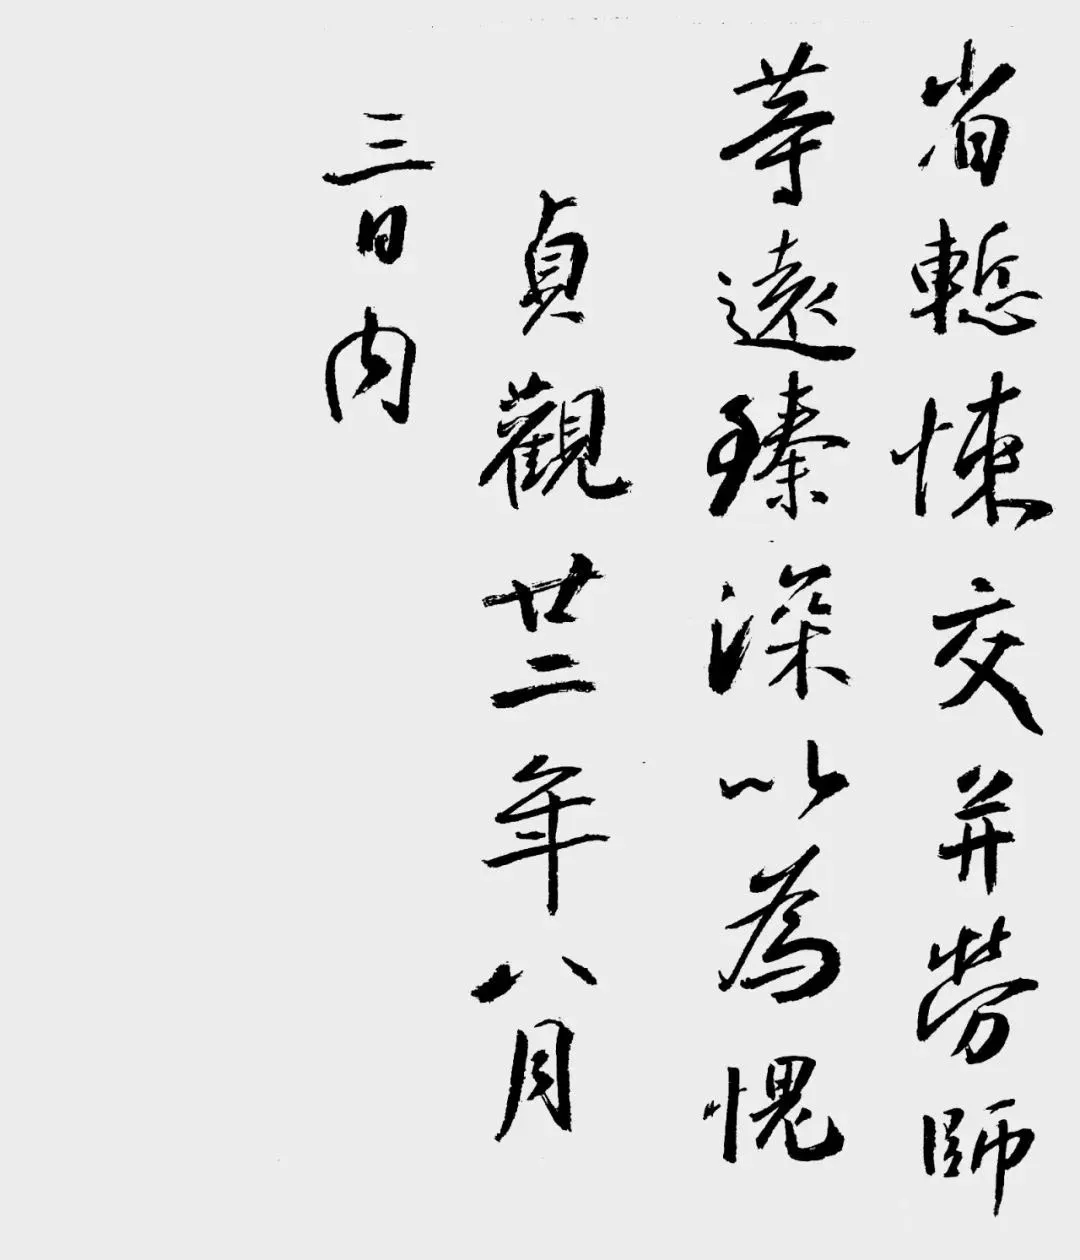 省慙悚交并勞師
等遠臻深以為愧
貞觀廿二年八月
三日內